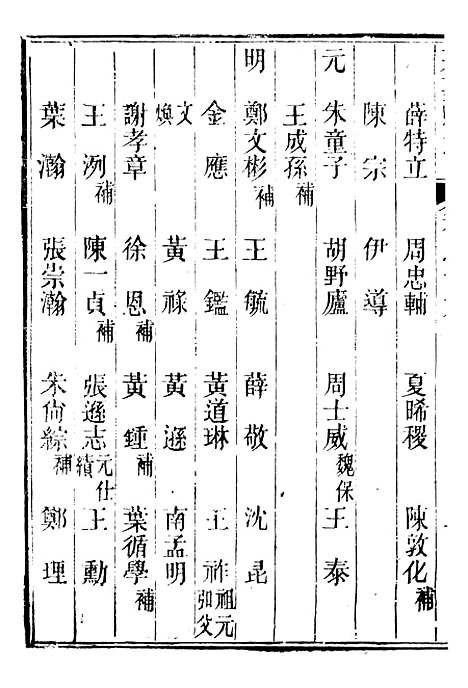 薛特立　周忠輔　夏晞稷　陳敦化補
陳宗　伊導
元　朱童子　胡野廬　周士威　魏保　王泰
王成孫補
明　鄭文彬補　王毓　薛敬　沈昆
金應　王鑑　黃道琳　王祚祖元
文煥　黃祿　黃遜　南孟明
謝孝章　徐恩補　黃鍾補　葉循學補
王洌補　陳一貞補　張遜志　元仕績　王勳
葉瀚　張崇瀚　朱尙綜補　鄭理